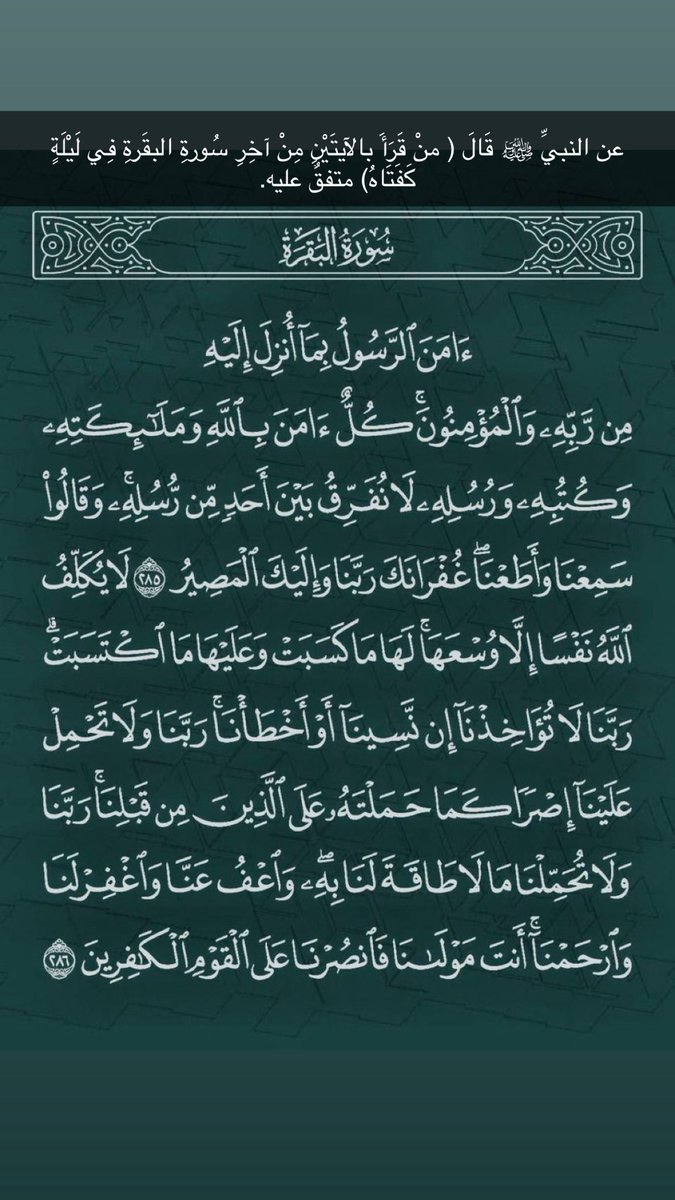 عن النبيِّ ﷺ قَالَ ( منْ قَرَأَ بالآيتَيْنِ مِنْ آخِرِ سُورةِ البقَرةِ فِي لَيْلَةٍ
كَفَتَاهُ) متفقٌ عليه.
سُورَةُ البَقَرَةِ
ءَامَنَ ٱلرَّسُولُ بِمَآ أُنزِلَ إِلَيْهِ
مِن رَّبِّهِۦ وَٱلْمُؤْمِنُونَۚ كُلٌّ ءَامَنَ بِٱللَّهِ وَمَلَٰٓئِكَتِهِۦ
وَكُتُبِهِۦ وَرُسُلِهِۦ لَا نُفَرِّقُ بَيْنَ أَحَدٍ مِّن رُّسُلِهِۦۚ وَقَالُوا۟
سَمِعْنَا وَأَطَعْنَاۖ غُفْرَانَكَ رَبَّنَا وَإِلَيْكَ ٱلْمَصِيرُ ٢٨٥ لَا يُكَلِّفُ
ٱللَّهُ نَفْسًا إِلَّا وُسْعَهَاۚ لَهَا مَا كَسَبَتْ وَعَلَيْهَا مَا ٱكْتَسَبَتْۗ
رَبَّنَا لَا تُؤَاخِذْنَآ إِن نَّسِينَآ أَوْ أَخْطَأْنَاۚ رَبَّنَا وَلَا تَحْمِلْ
عَلَيْنَآ إِصْرًا كَمَا حَمَلْتَهُۥ عَلَى ٱلَّذِينَ مِن قَبْلِنَاۚ رَبَّنَا
وَلَا تُحَمِّلْنَا مَا لَا طَاقَةَ لَنَا بِهِۦۖ وَٱعْفُ عَنَّا وَٱغْفِرْ لَنَا
وَٱرْحَمْنَآۚ أَنتَ مَوْلَىٰنَا فَٱنصُرْنَا عَلَى ٱلْقَوْمِ ٱلْكَٰفِرِينَ ٢٨٦